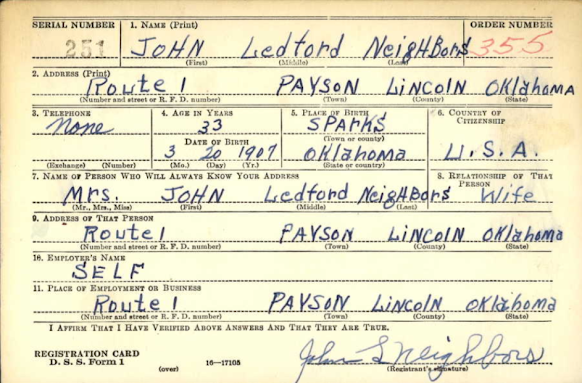 SERIAL NUMBER 1. NAME (Print) ORDER NUMBER
251 JOHN Ledford NeigHBors 355
(First) (Middle) (Last)
2. ADDRESS (Print)
Route 1 PAYSON LINCOLN OKlahomA
(Number and street or R. F. D. number) (Town) (County) (State)
3. TELEPHONE 4. AGE IN YEARS 5. PLACE OF BIRTH 6. COUNTRY OF CITIZENSHIP
None 33 SPARKS
(Town or county)
DATE OF BIRTH
3 20 1907 OKlahoma U.S.A.
(Exchange) (Number) (Mo.) (Day) (Yr.) (State or country)
7. NAME OF PERSON WHO WILL ALWAYS KNOW YOUR ADDRESS 8. RELATIONSHIP OF THAT PERSON
Mrs. JOHN Ledford NeigHBors Wife
(Mr., Mrs., Miss) (First) (Middle) (Last)
9. ADDRESS OF THAT PERSON
Route 1 PAYSON LiNColN OKlahoma
(Number and street or R. F. D. number) (Town) (County) (State)
10. EMPLOYER'S NAME
SELF
11. PLACE OF EMPLOYMENT OR BUSINESS
Route 1 PAYSON LINColN OKlahoma
(Number and street or R. F. D. number) (Town) (County) (State)
I AFFIRM THAT I HAVE VERIFIED ABOVE ANSWERS AND THAT THEY ARE TRUE.
REGISTRATION CARD
D. S. S. Form 1 16—17105 John L Neighbors
(over) (Registrant's signature)